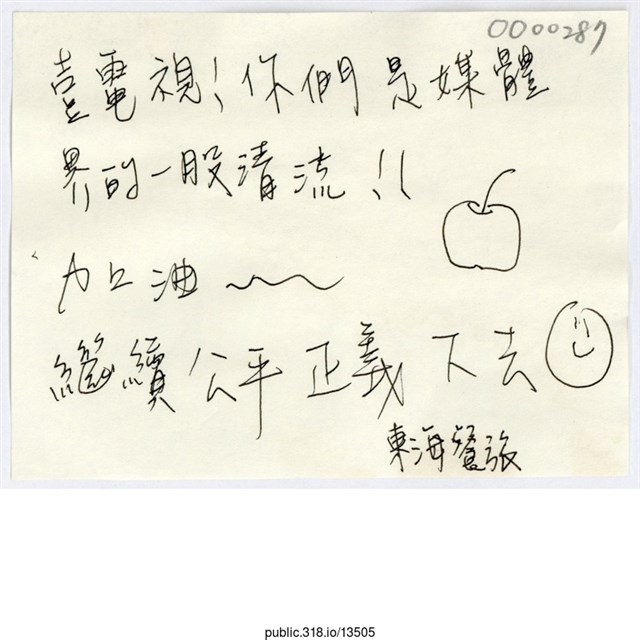 0000287
壹電視!你們是媒體
界的一股清流!!
加油
繼續公平正義下去
東海餐張
public.318.io/13505